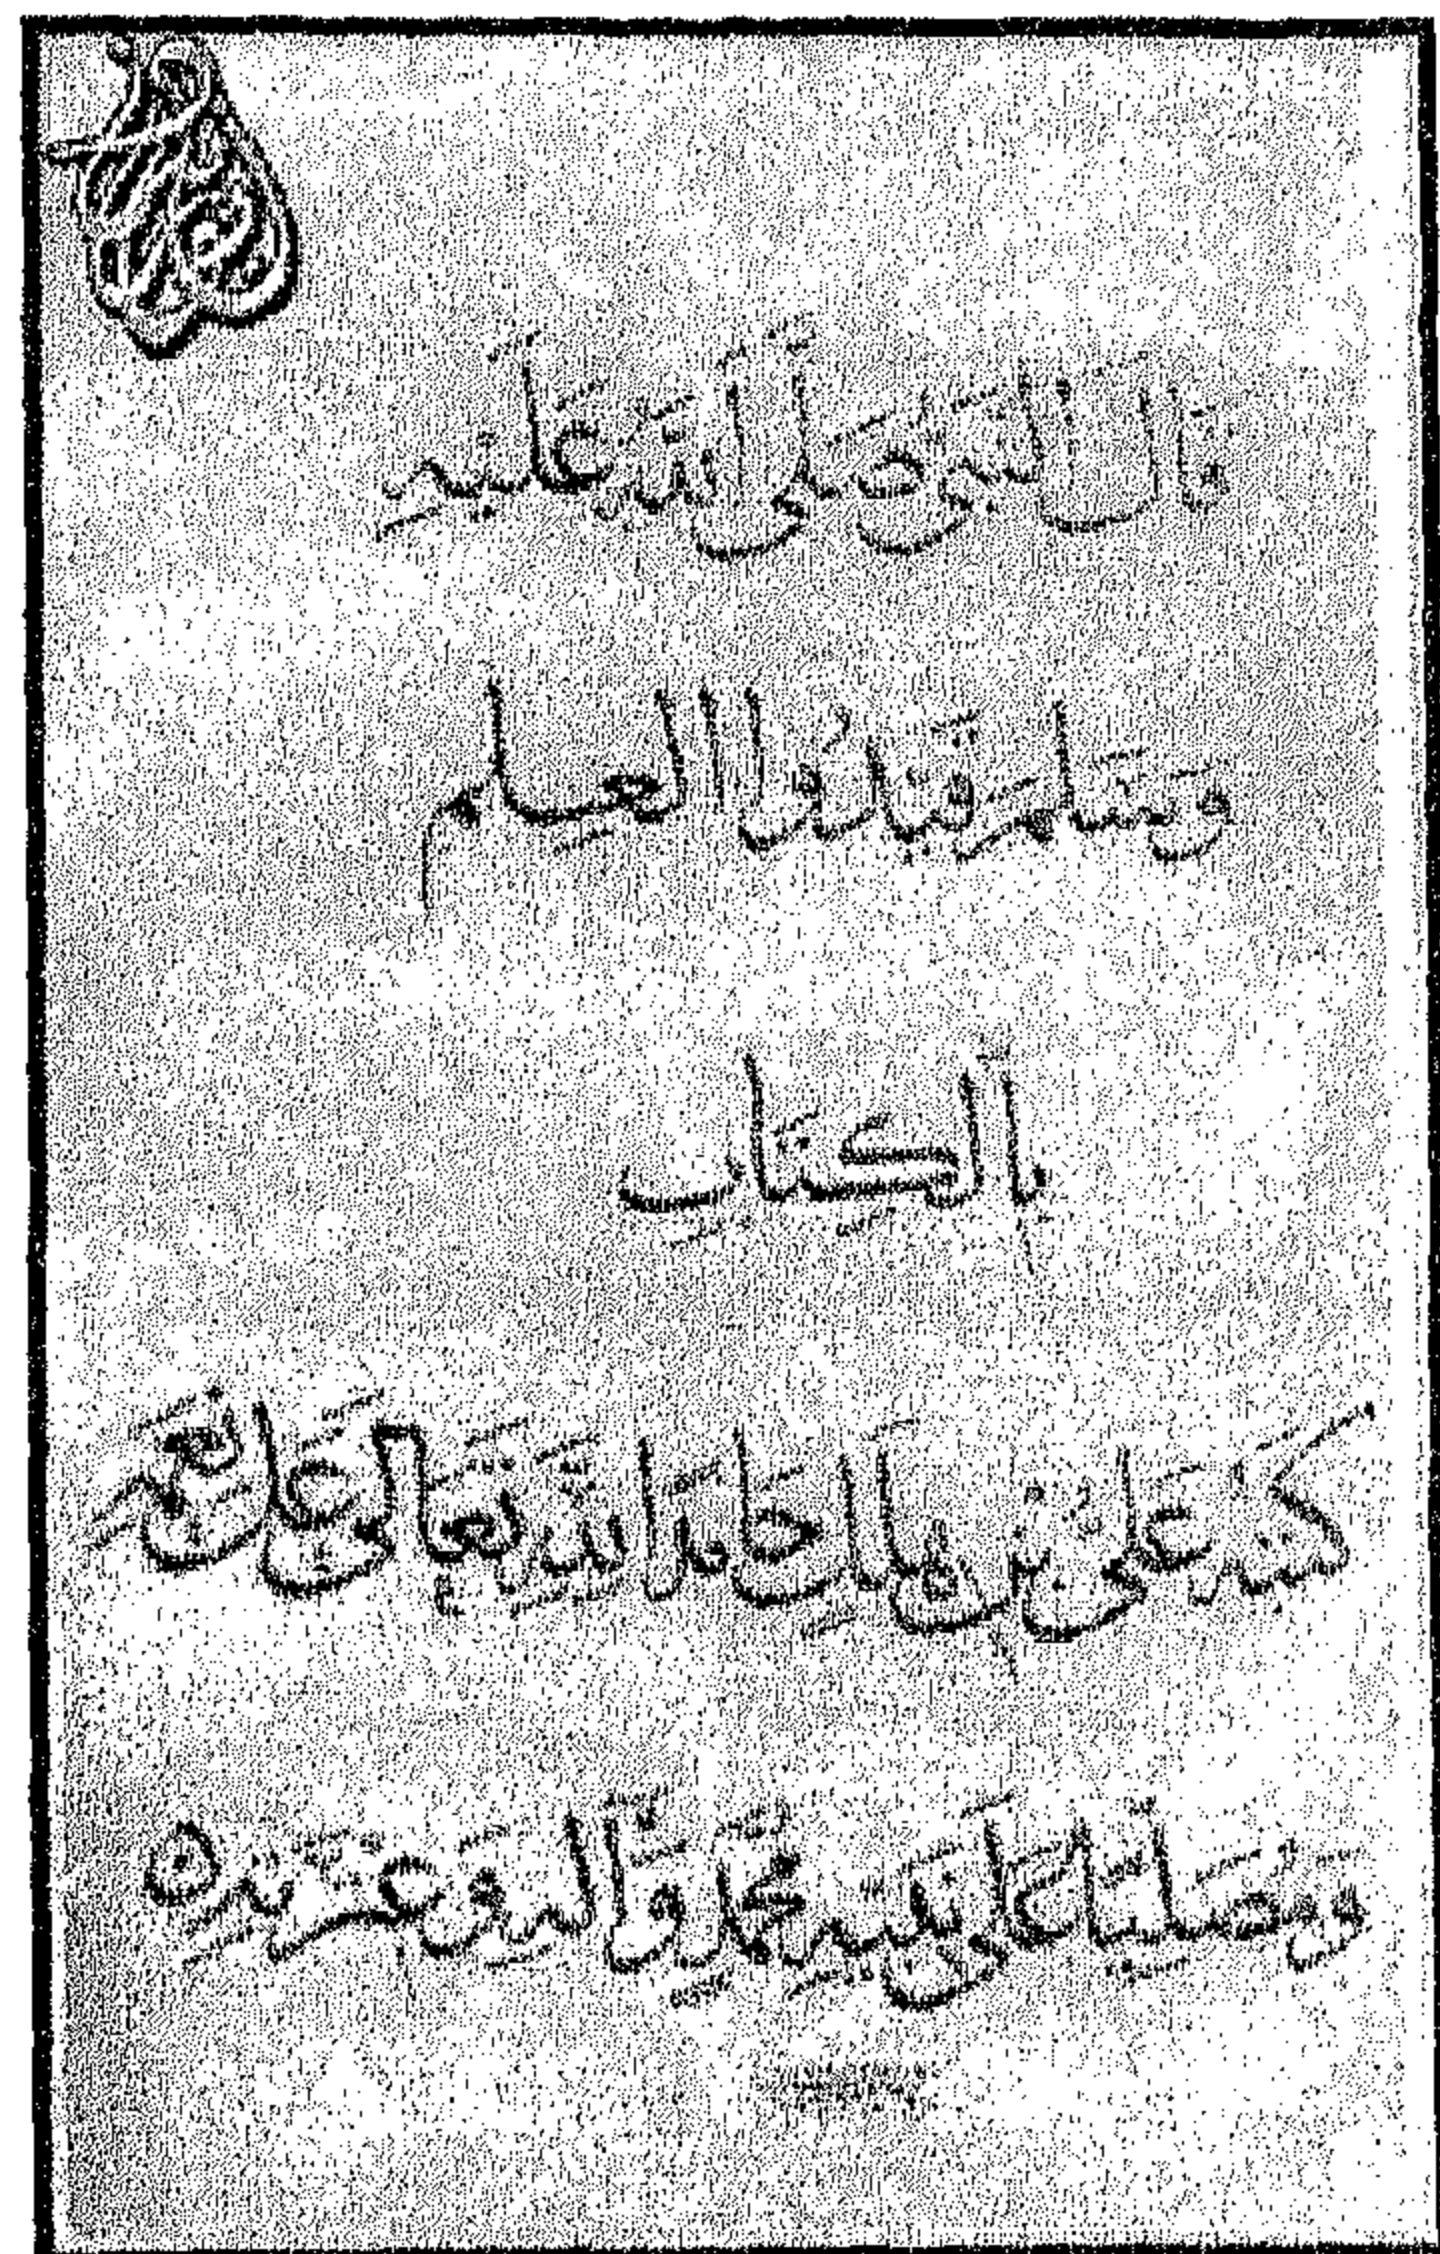 قال النبي صلى الله عليه
وسلم قيدوا العلم
بالكتاب
كتبه علي بن هلال حامدا لله تعالى على نعمه
ومصليا على نبيه محمد وآله وعترته